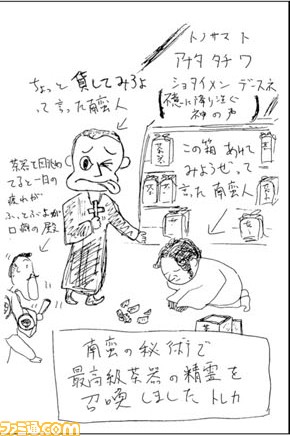 トノサマト
アナタタチワ
ショタイメンデースネ
↑
頭に降り注ぐ
神の声
ちょっと貸してみろよ
って言った南蛮人
この箱あれて
みようぜって
言った南蛮人
茶器を眺め
てると一日の
疲れが
ふっとぶよが
口癖の殿
南蛮の秘術で
最高級茶器の精霊を
召喚しました トレカ
ファミ通.com